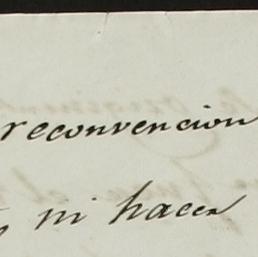 reconvencion
ni hacer